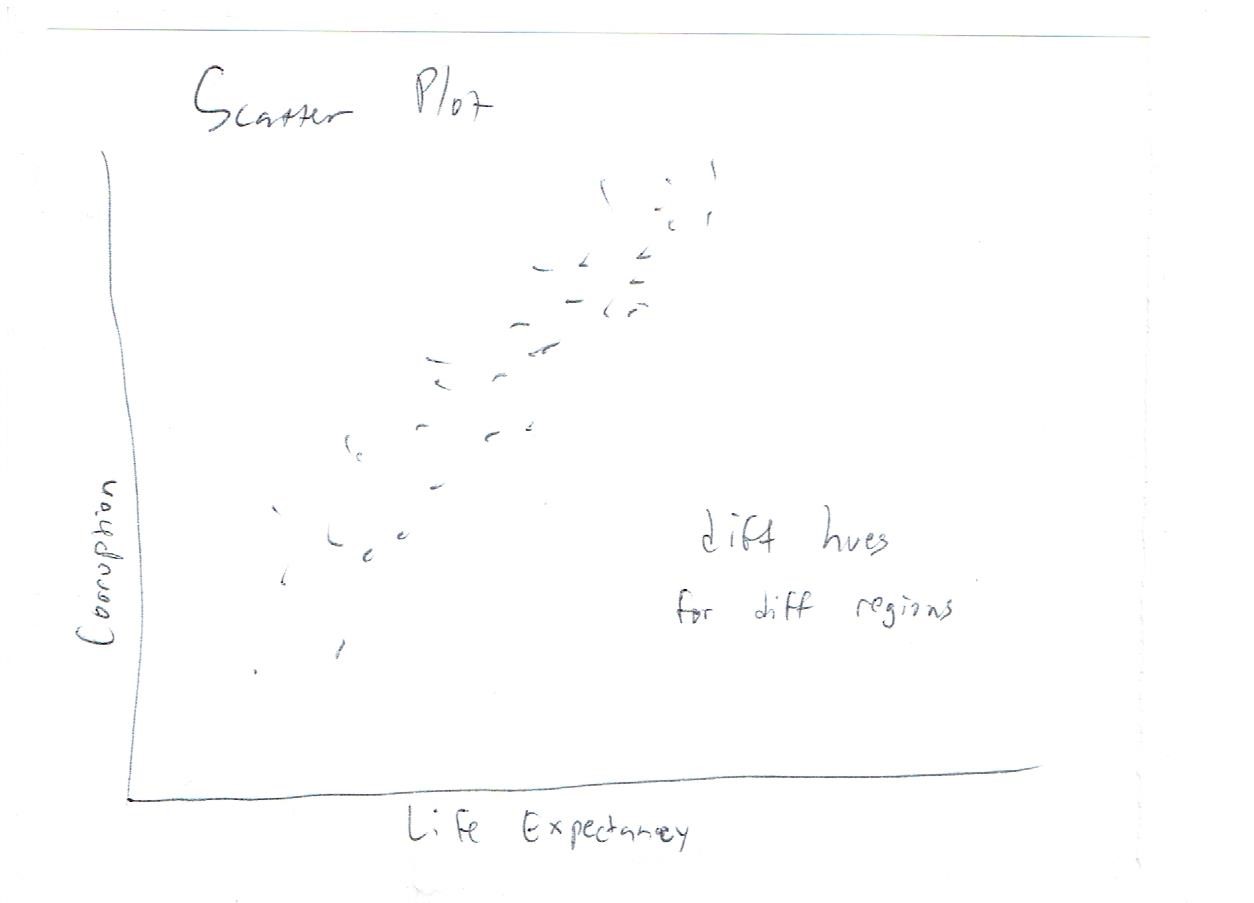 Scatter Plot
Corruption
diff hues
for diff regions
Life Expectancy